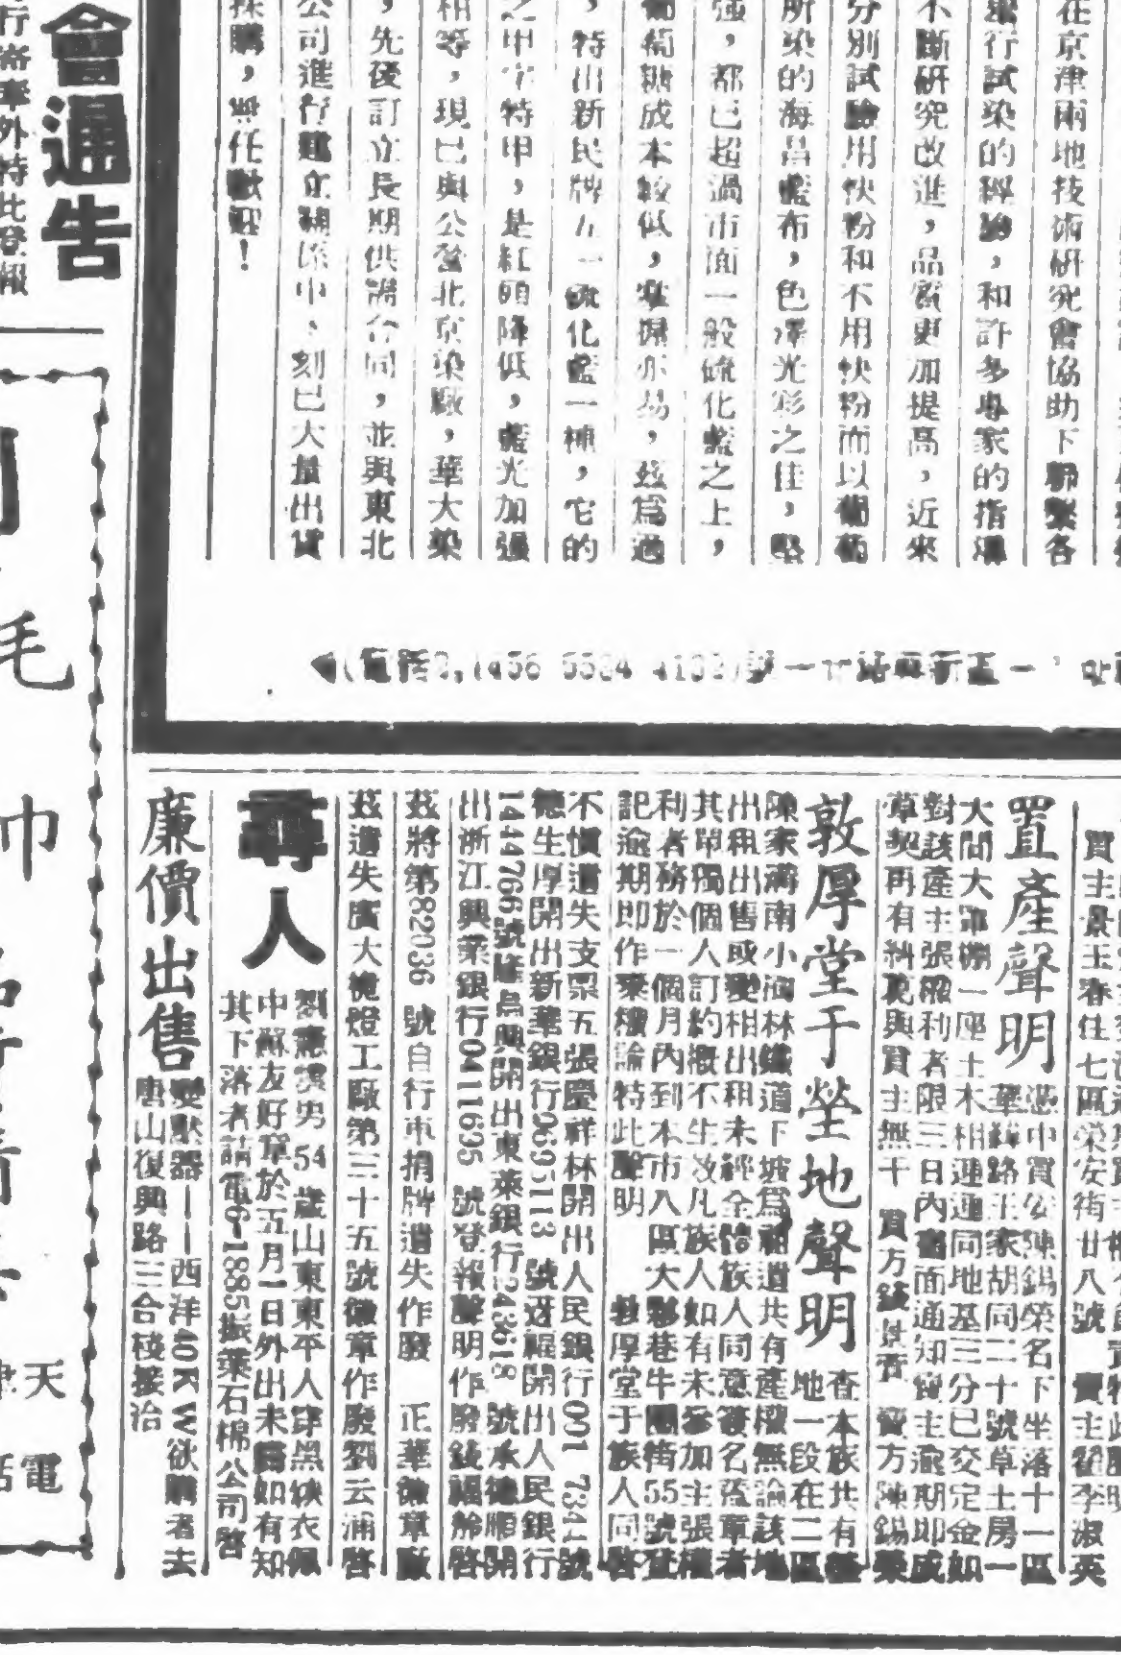 在京津兩地技術研究會協助下聯繫各
行試染的經驗，和許多專家的指導
不斷研究改進，品質更加提高，近來
分別試驗用快粉和不用快粉而以葡萄
所染的海昌藍布，色澤光彩之佳，堅
強，都已超過市面一般硫化藍之上，
葡萄糖成本較低，掌握亦易，茲爲適
，特出新民牌五一硫化藍一種，它的
之甲字特甲，是紅頭降低，藍光加强
相等，現已與公營北京染廠，華大染
，先後訂立長期供請合同，並與東北
公司進行建立關係中、刻已大量出貨
採購，無任歡迎！
會通告
行審率外特此登報
買主景王春住七區榮安街廿八號　賣主翟李淑英
置產聲明
憑中買公陳錫榮名下坐落十一區
華錦路王家胡同二十號草土房一
大間大罩棚一座土木相連連同地基三分已交定金如
對該產主張權利者限三日內書面通知買主逾期即成
草契再有糾葛與買主無干　買方錢景香　賣方陳錫榮
敦厚堂于塋地聲明
查本族共有塋
地一段在二區
陳家溝南小閻林鐵道下坡爲祖遺共有產權無論該地
出租出售或變相出租未經全體族人同意簽名蓋章者
其單獨個人訂約概不生效凡族人如有未參加主張權
利者務於一個月內到本市八區大夥巷牛圈街55號登
記逾期即作棄權論特此聲明　　敦厚堂于族人同啓
不慎遺失支票五張慶祥林開出人民銀行001 7341號
德生厚開出新華銀行9695113 號迓福開出人民銀行
1444766號隆昌興開出東萊銀行243618 號永德順開
出浙江興業銀行0411695 號登報聲明作廢錢福齡啓
茲將第82036 號自行車捐牌遺失作廢　正華徽章廠
茲遺失廣大槍燈工廠第三十五號徽章作廢劉云浦啓
尋人
劉憲濮男54歲山東東平人穿黑裌衣佩
中蘇友好章於五月1日外出未歸如有知
其下落者請電6-1885振業石棉公司啓
廉價出售
變壓器——西洋40KW欲購者去
唐山復興路三合棧接洽
毛
巾
天
電